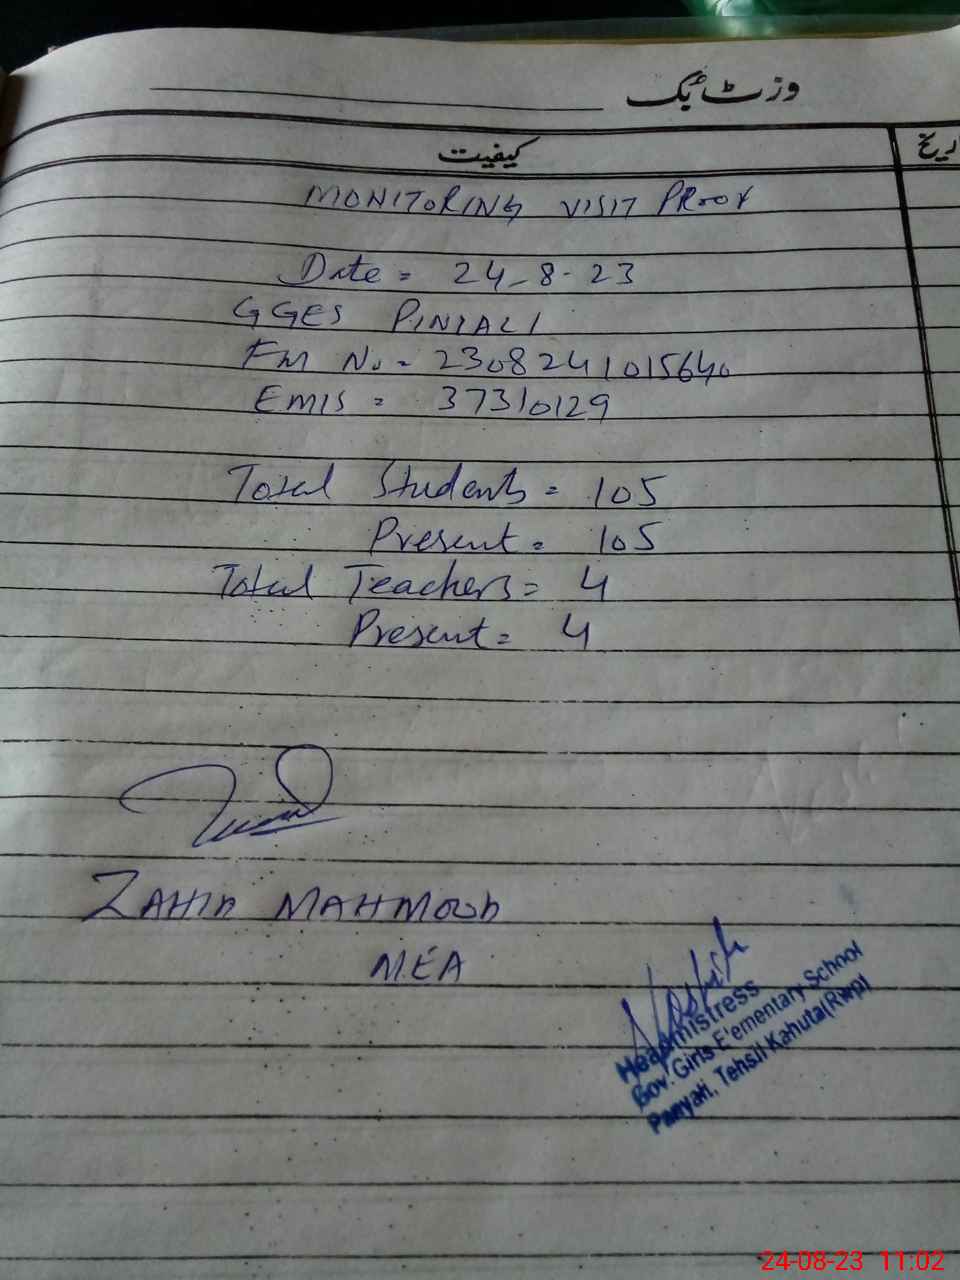 وزٹ بک
کیفیت
تاریخ
MONITORING VISIT PROOF
Date = 24-8-23
GGES PINJALI
FM No. = 2308241015640
EMIS = 37310129
Total Students = 105
Present = 105
Total Teachers = 4
Present = 4
ZAHID MAHMOOD
MEA
Headmistress
Gov. Girls Elementary School
Tehsil Kahuta(Rwp)
24-08-23 11:02